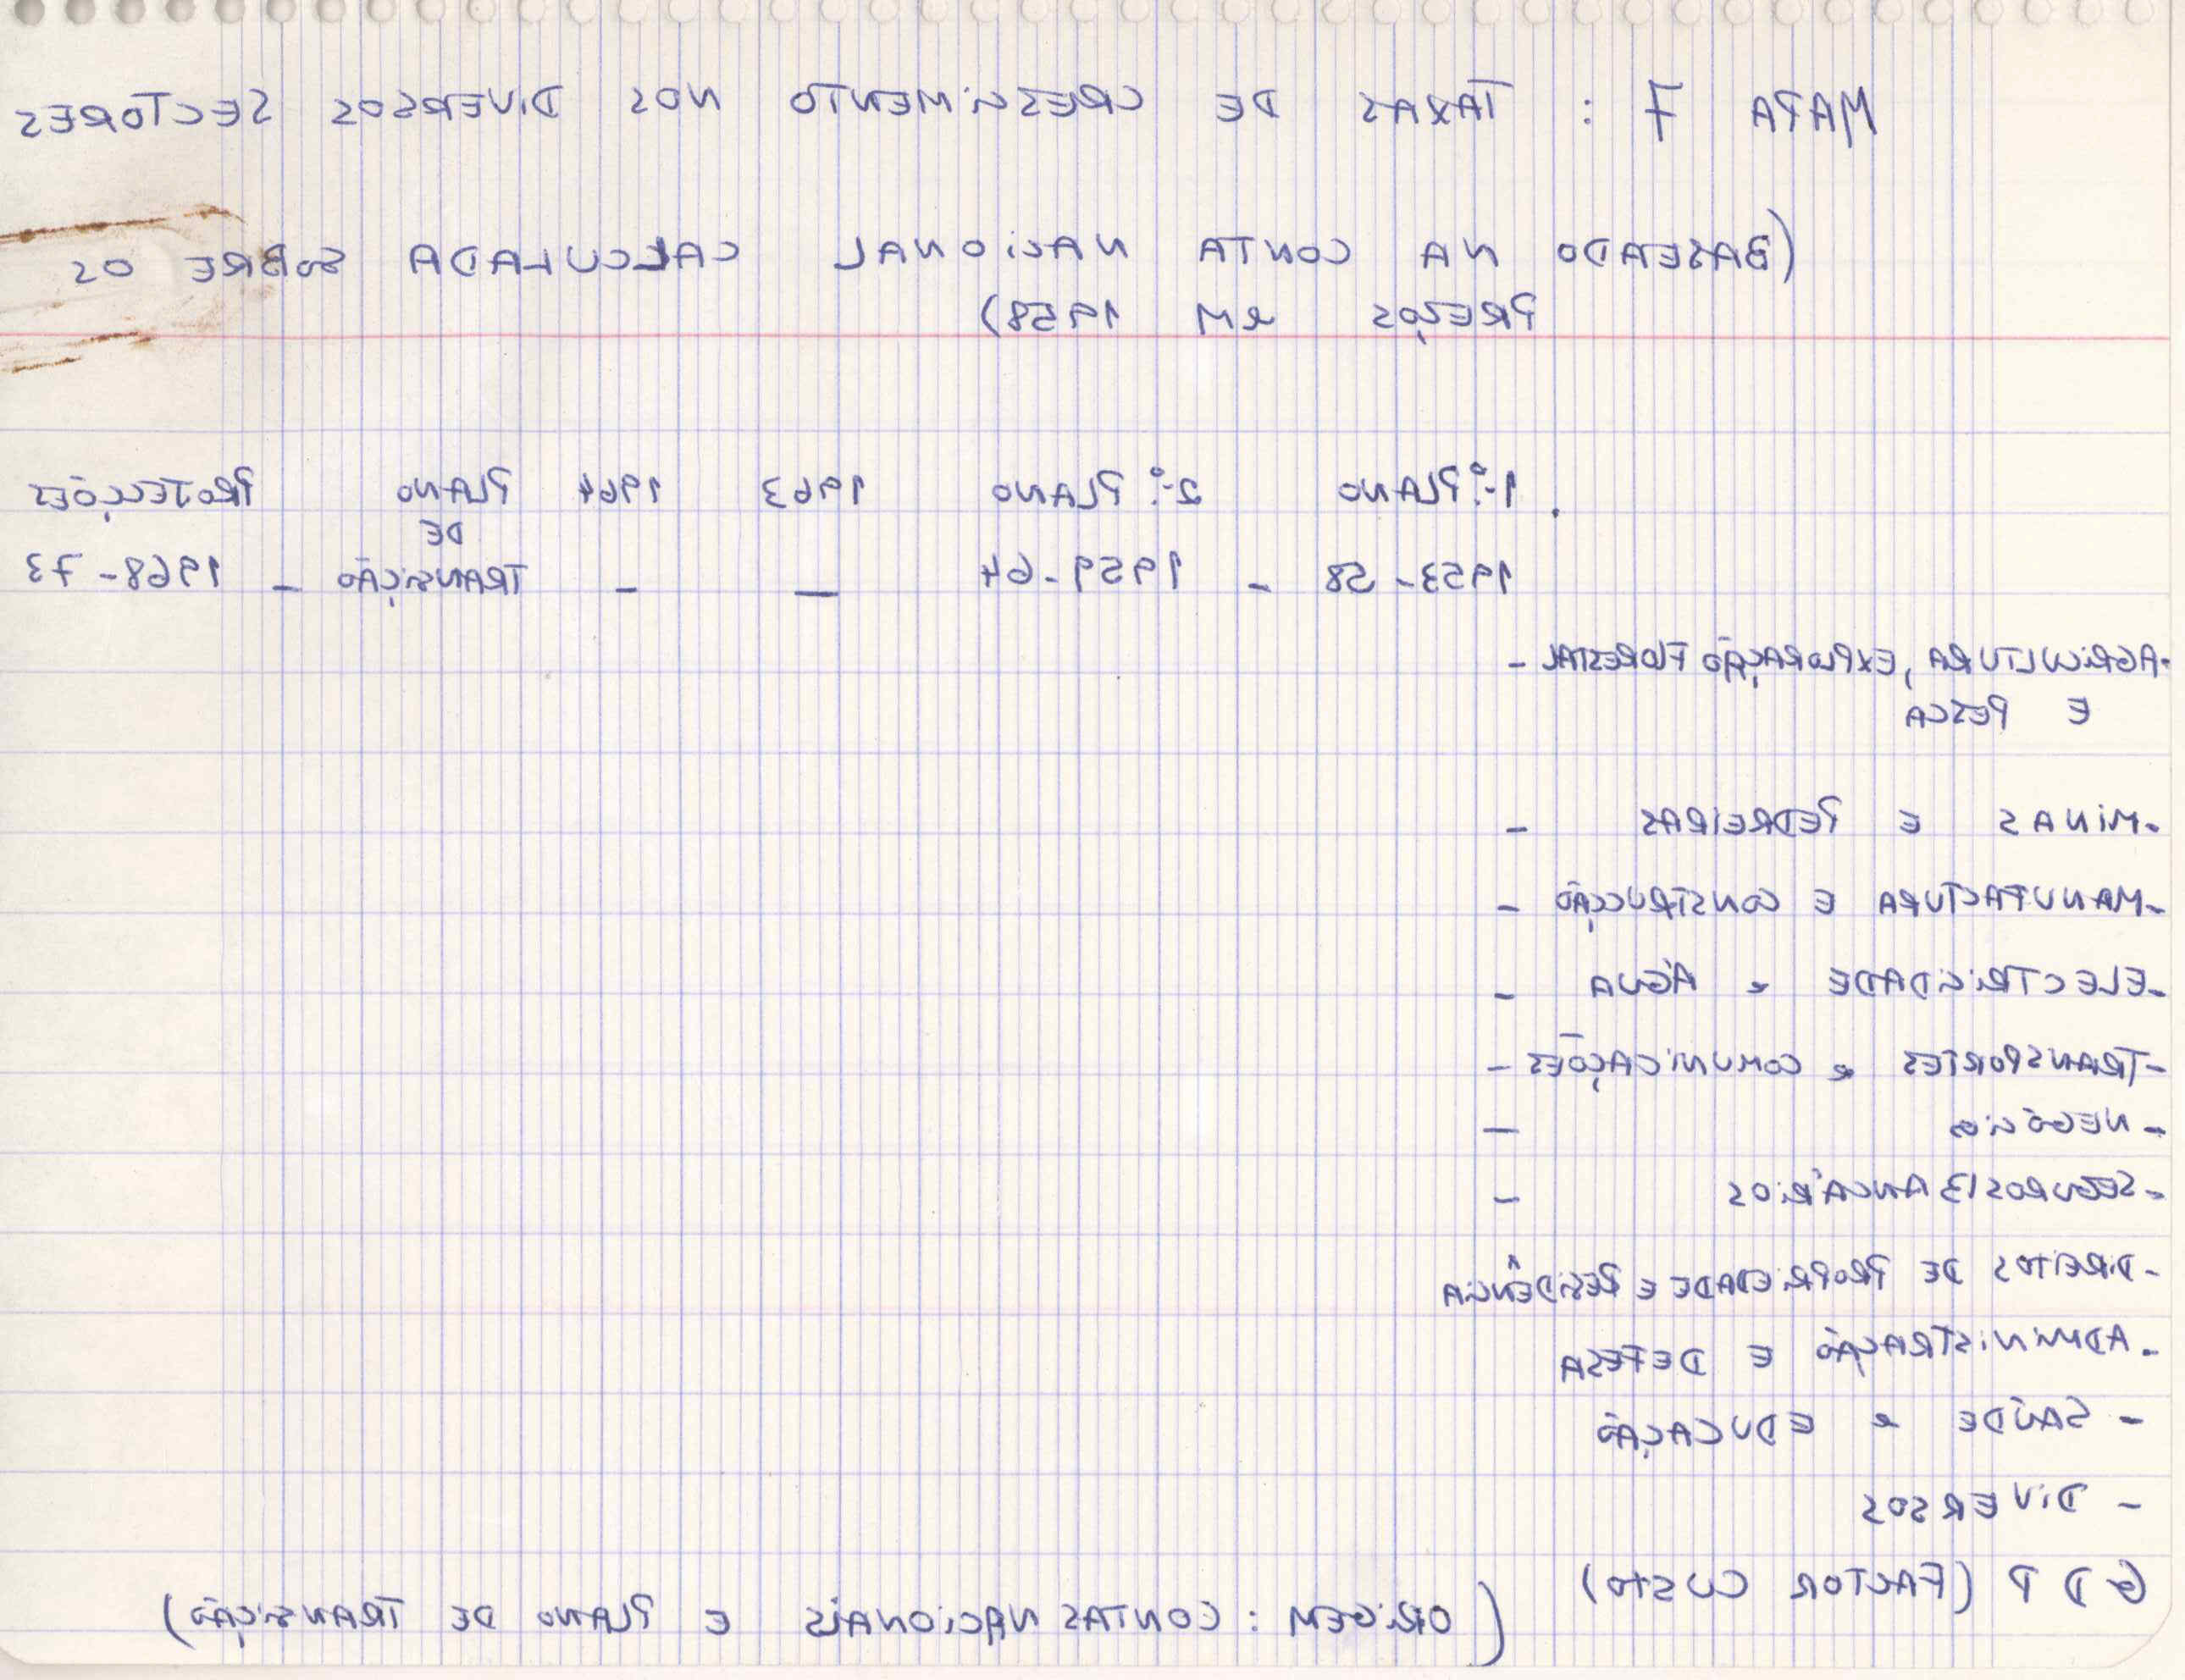 MAPA 7 : TAXAS DE CRESCIMENTO NOS DIVERSOS SECTORES
(BASEADO NA CONTA NACIONAL CALCULADA SOBRE OS
PREÇOS em 1958)
1-º PLANO 2-º PLANO 1963 1964 PLANO PROJECÇÕES
DE
1953-58 - 1959-64 — - TRANSIÇÃO - 1968-73
-AGRICULTURA, EXPLORAÇÃO FLORESTAL -
E PESCA
-MINAS E PEDREIRAS -
-MANUFACTURA E CONSTRUCÇÃO -
-ELECTRICIDADE e ÁGUA -
-TRANSPORTES e COMUNICAÇÕES -
-NEGÓCIOS —
-SEGUROS BANCÁRIOS -
-DIREITOS DE PROPRIEDADE E RESIDÊNCIA
-ADMINISTRAÇÃO E DEFESA
- SAÚDE e EDUCAÇÃO
- DIVERSOS
G D P (FACTOR CUSTO)
(ORIGEM : CONTAS NACIONAIS E PLANO DE TRANSIÇÃO)